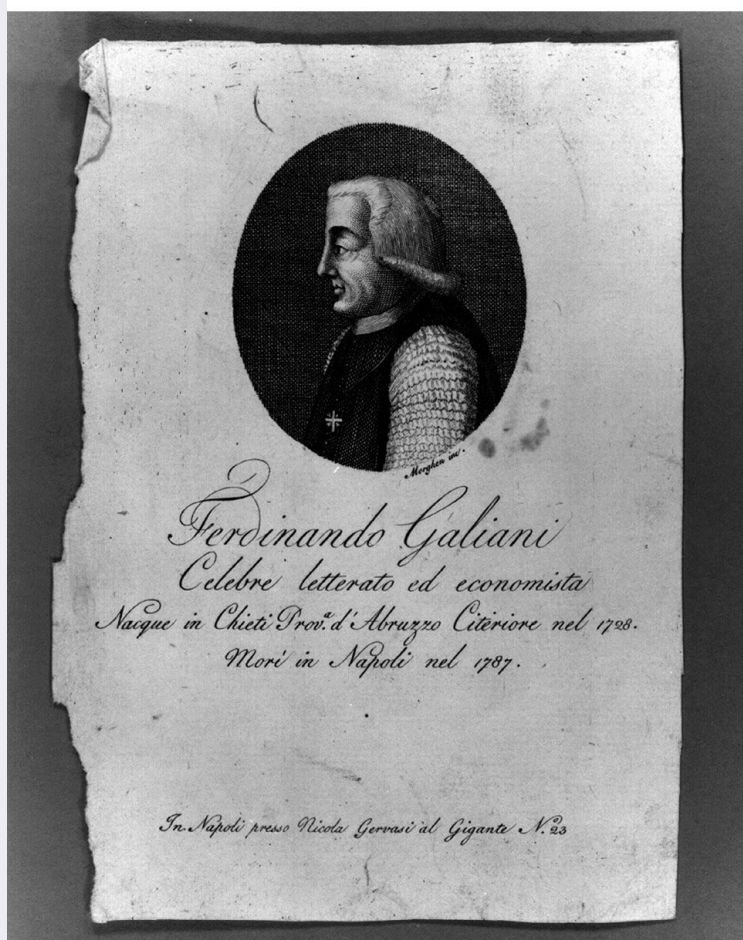 Morghen inc.
Ferdinando Galiani
Celebre letterato ed economista
Nacque in Chieti Prov.ª d'Abruzzo Citeriore nel 1728.
Morì in Napoli nel 1787.
In Napoli presso Nicola Gervasi al Gigante N.º 23